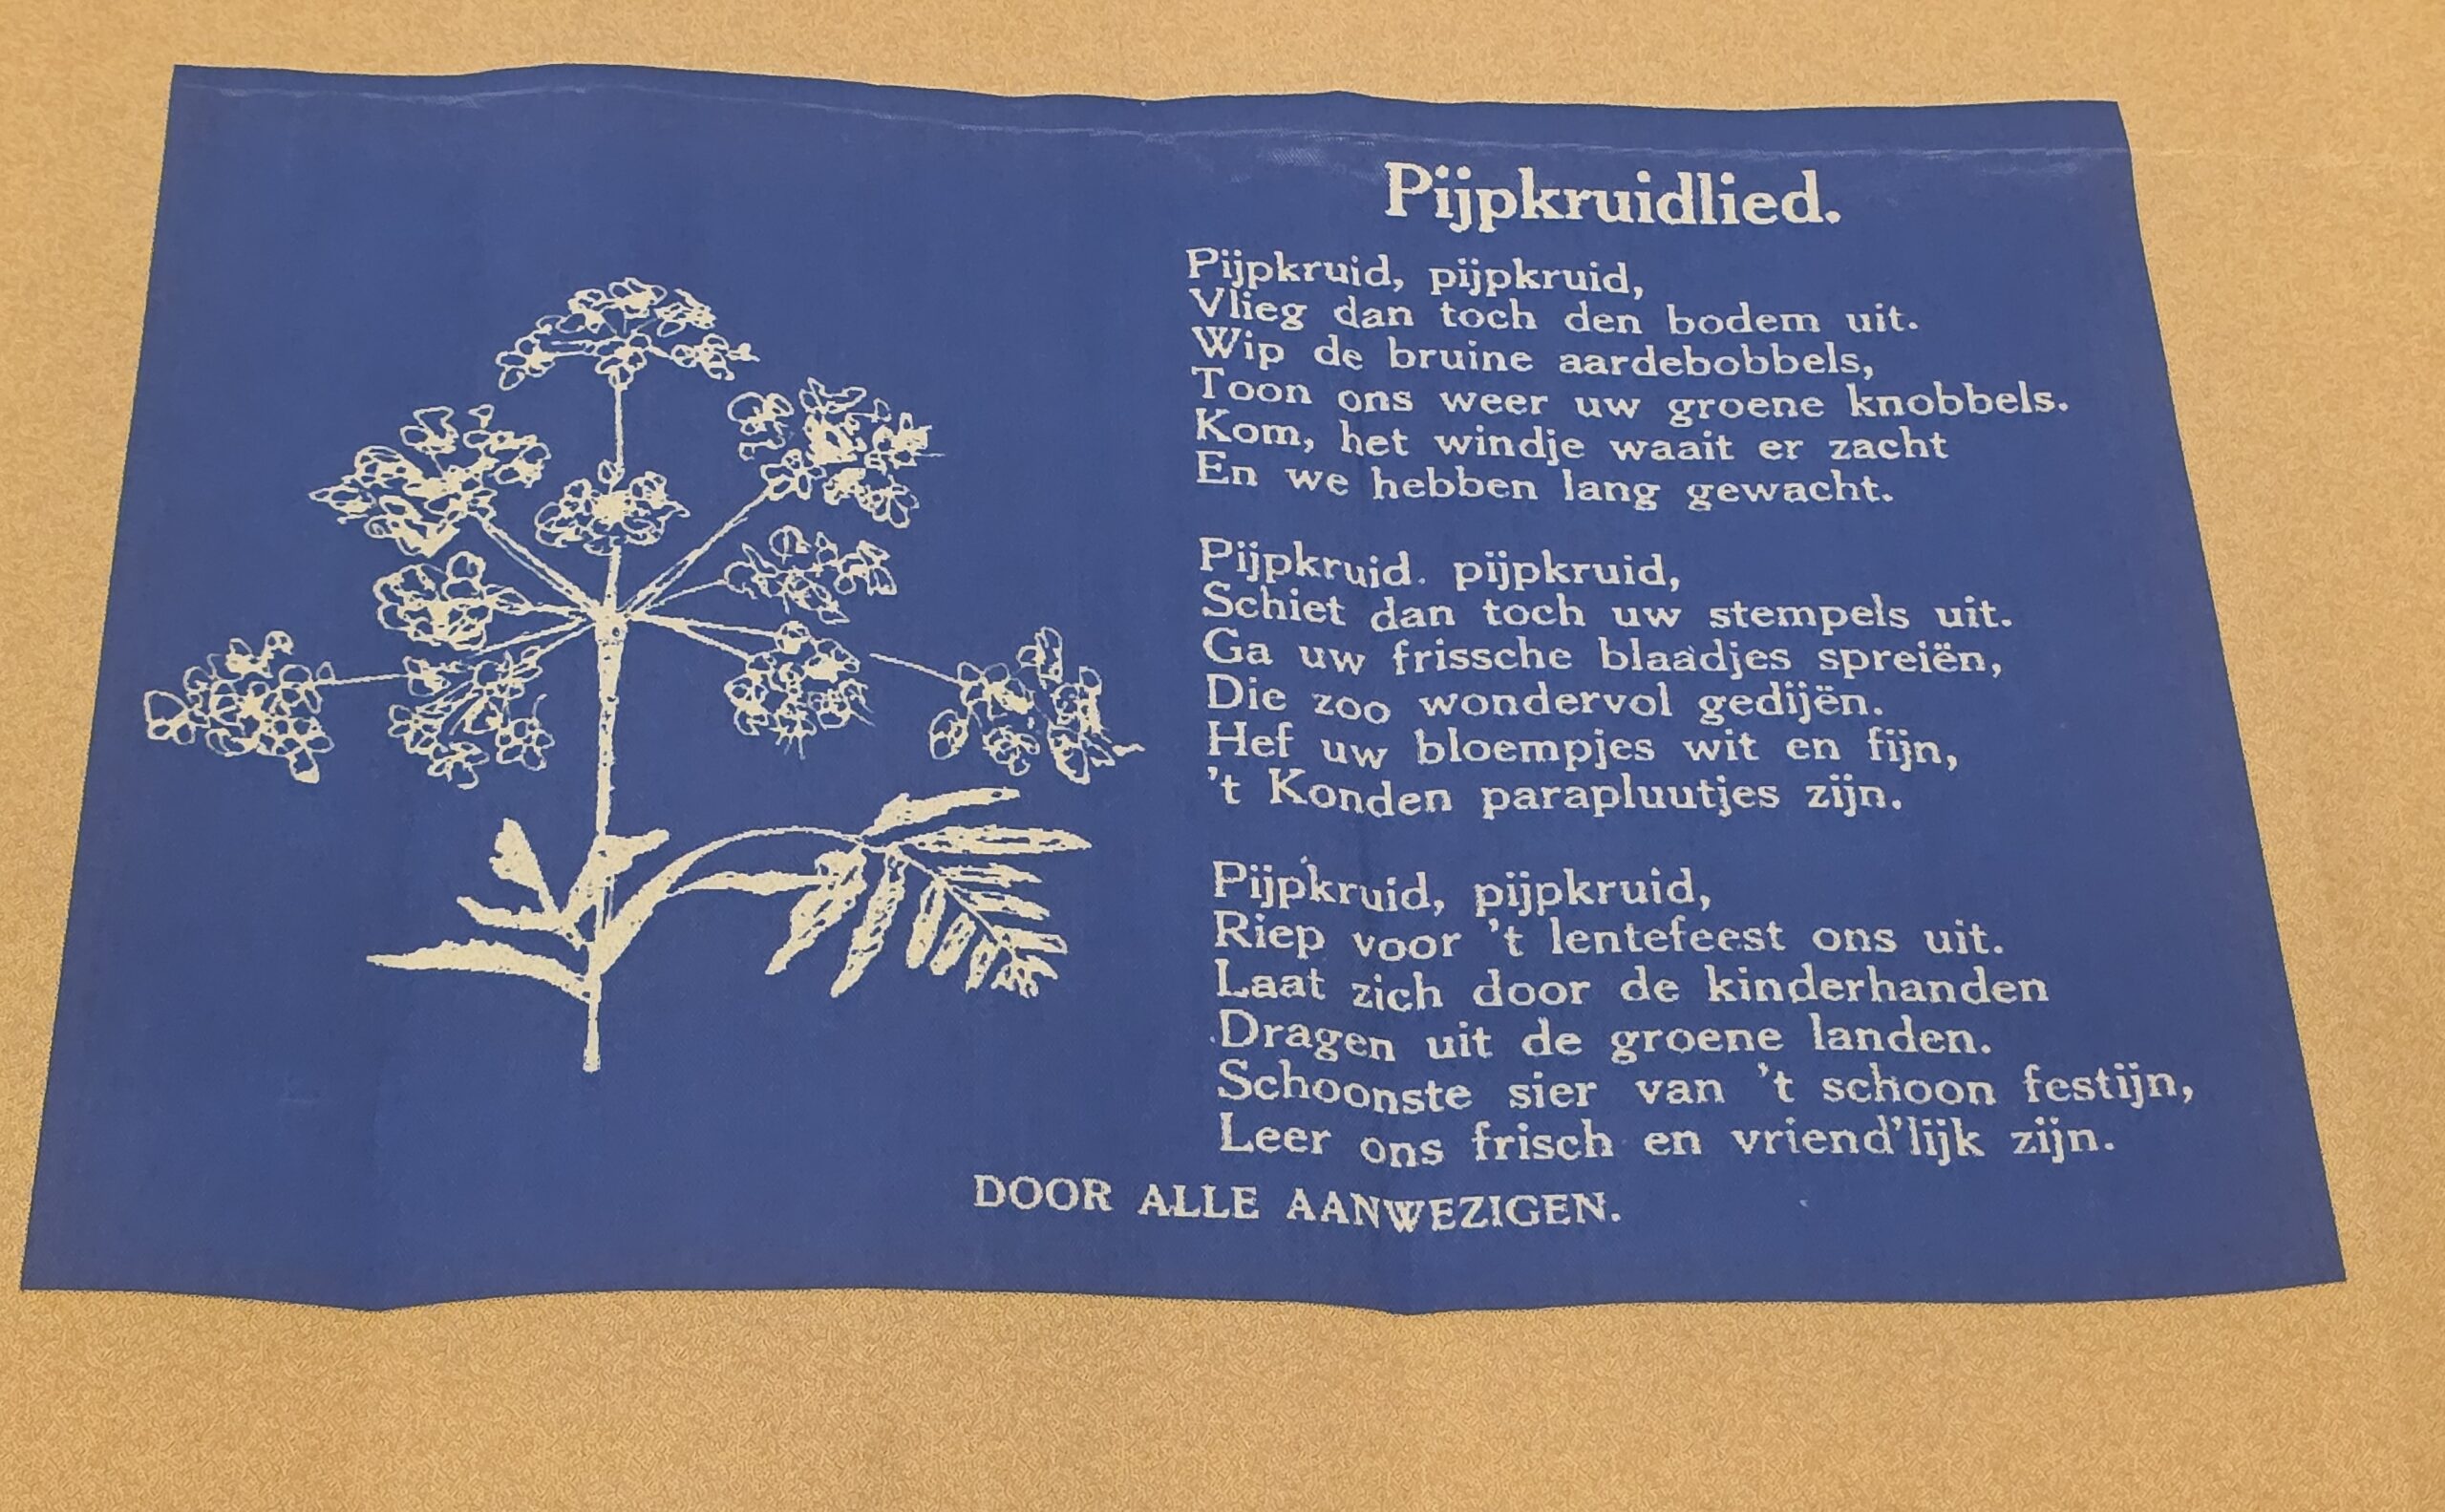 Pijpkruidlied.
Pijpkruid, pijpkruid,
Vlieg dan toch den bodem uit.
Wip de bruine aardebobbels,
Toon ons weer uw groene knobbels.
Kom, het windje waait er zacht
En we hebben lang gewacht.
Pijpkruid. pijpkruid,
Schiet dan toch uw stempels uit.
Ga uw frissche blaadjes spreiën,
Die zoo wondervol gedijën.
Hef uw bloempjes wit en fijn,
't Konden parapluutjes zijn.
Pijpkruid, pijpkruid,
Riep voor 't lentefeest ons uit.
Laat zich door de kinderhanden
Dragen uit de groene landen.
Schoonste sier van 't schoon festijn,
Leer ons frisch en vriend'lijk zijn.
DOOR ALLE AANWEZIGEN.